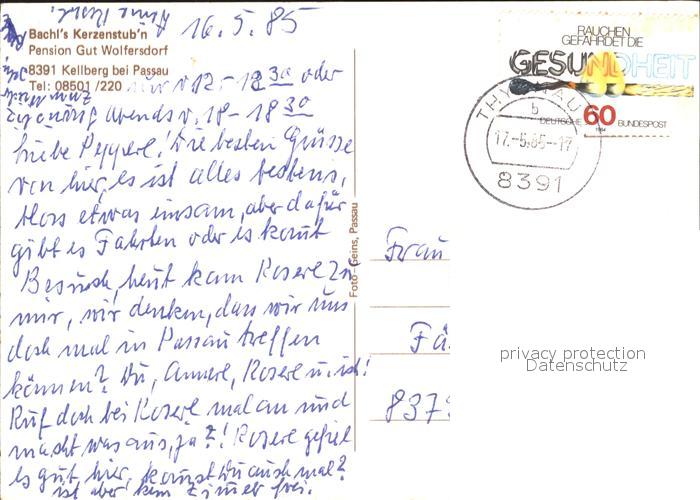 16.5.85
Bachl's Kerzenstub'n
Pension Gut Wolfersdorf
8391 Kellberg bei Passau
Tel: 08501/220 nur v 12-12 30 oder
abends v. 18-18 30
Liebe Pepperl! Die besten Grüsse
von hier, es ist alles bestens,
bloss etwas einsam, aber dafür
gibt es Fahrten oder es kommt
Besuch, heut kam Roserl zu
mir, wir denken, dass wir uns
doch mal in Passau treffen
können? Du, Annerl, Roserl u. ich!
Ruf doch bei Roserl mal an und
macht was aus, ja?! Roserl gefiel
es gut hier, kommst Du auch mal?
ist aber kein Zimmer frei.
Foto-Geins, Passau
RAUCHEN
GEFÄHRDET DIE
GESUNDHEIT
DEUTSCHE
60
BUNDESPOST
1984
b
17.-5.85-17
8391
Frau
Fü
837
privacy protection
Datenschutz